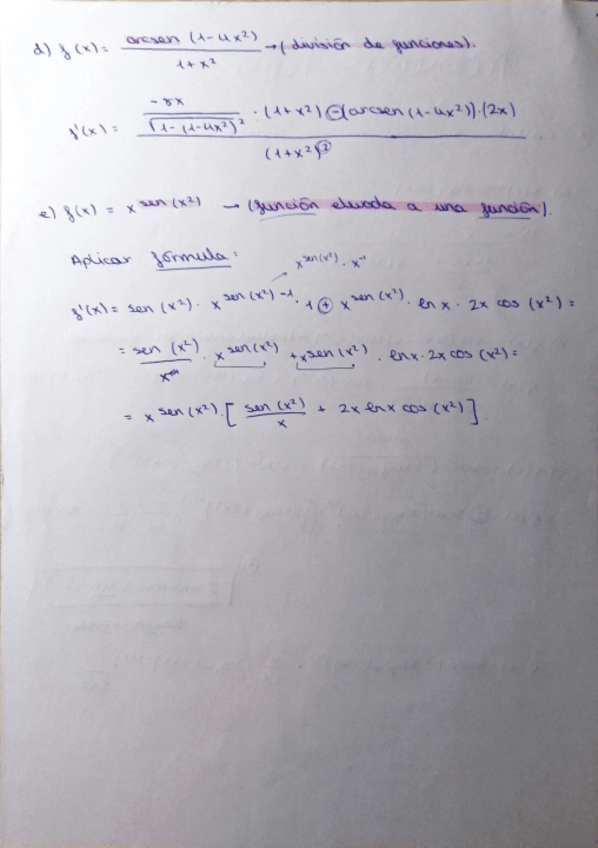 d) f(x) = arcsen (1-4x²) / 1+x² → (división de funciones).
f'(x) = -8x / √1-(1-4x²)² · (1+x²) ⊖ (arcsen (1-4x²))·(2x) / (1+x²)²
e) f(x) = x^sen(x²) → (función elevada a una función).
Aplicar fórmula:
x^sen(x²) · x⁻¹
f'(x) = sen(x²) · x^sen(x²)-1 · 1 ⊕ x^sen(x²) · ln x · 2x cos (x²) =
= sen (x²) / x · x^sen(x²) + x^sen(x²) · lnx · 2x cos (x²) =
= x^sen(x²) · [sen(x²) / x + 2x lnx cos (x²)]